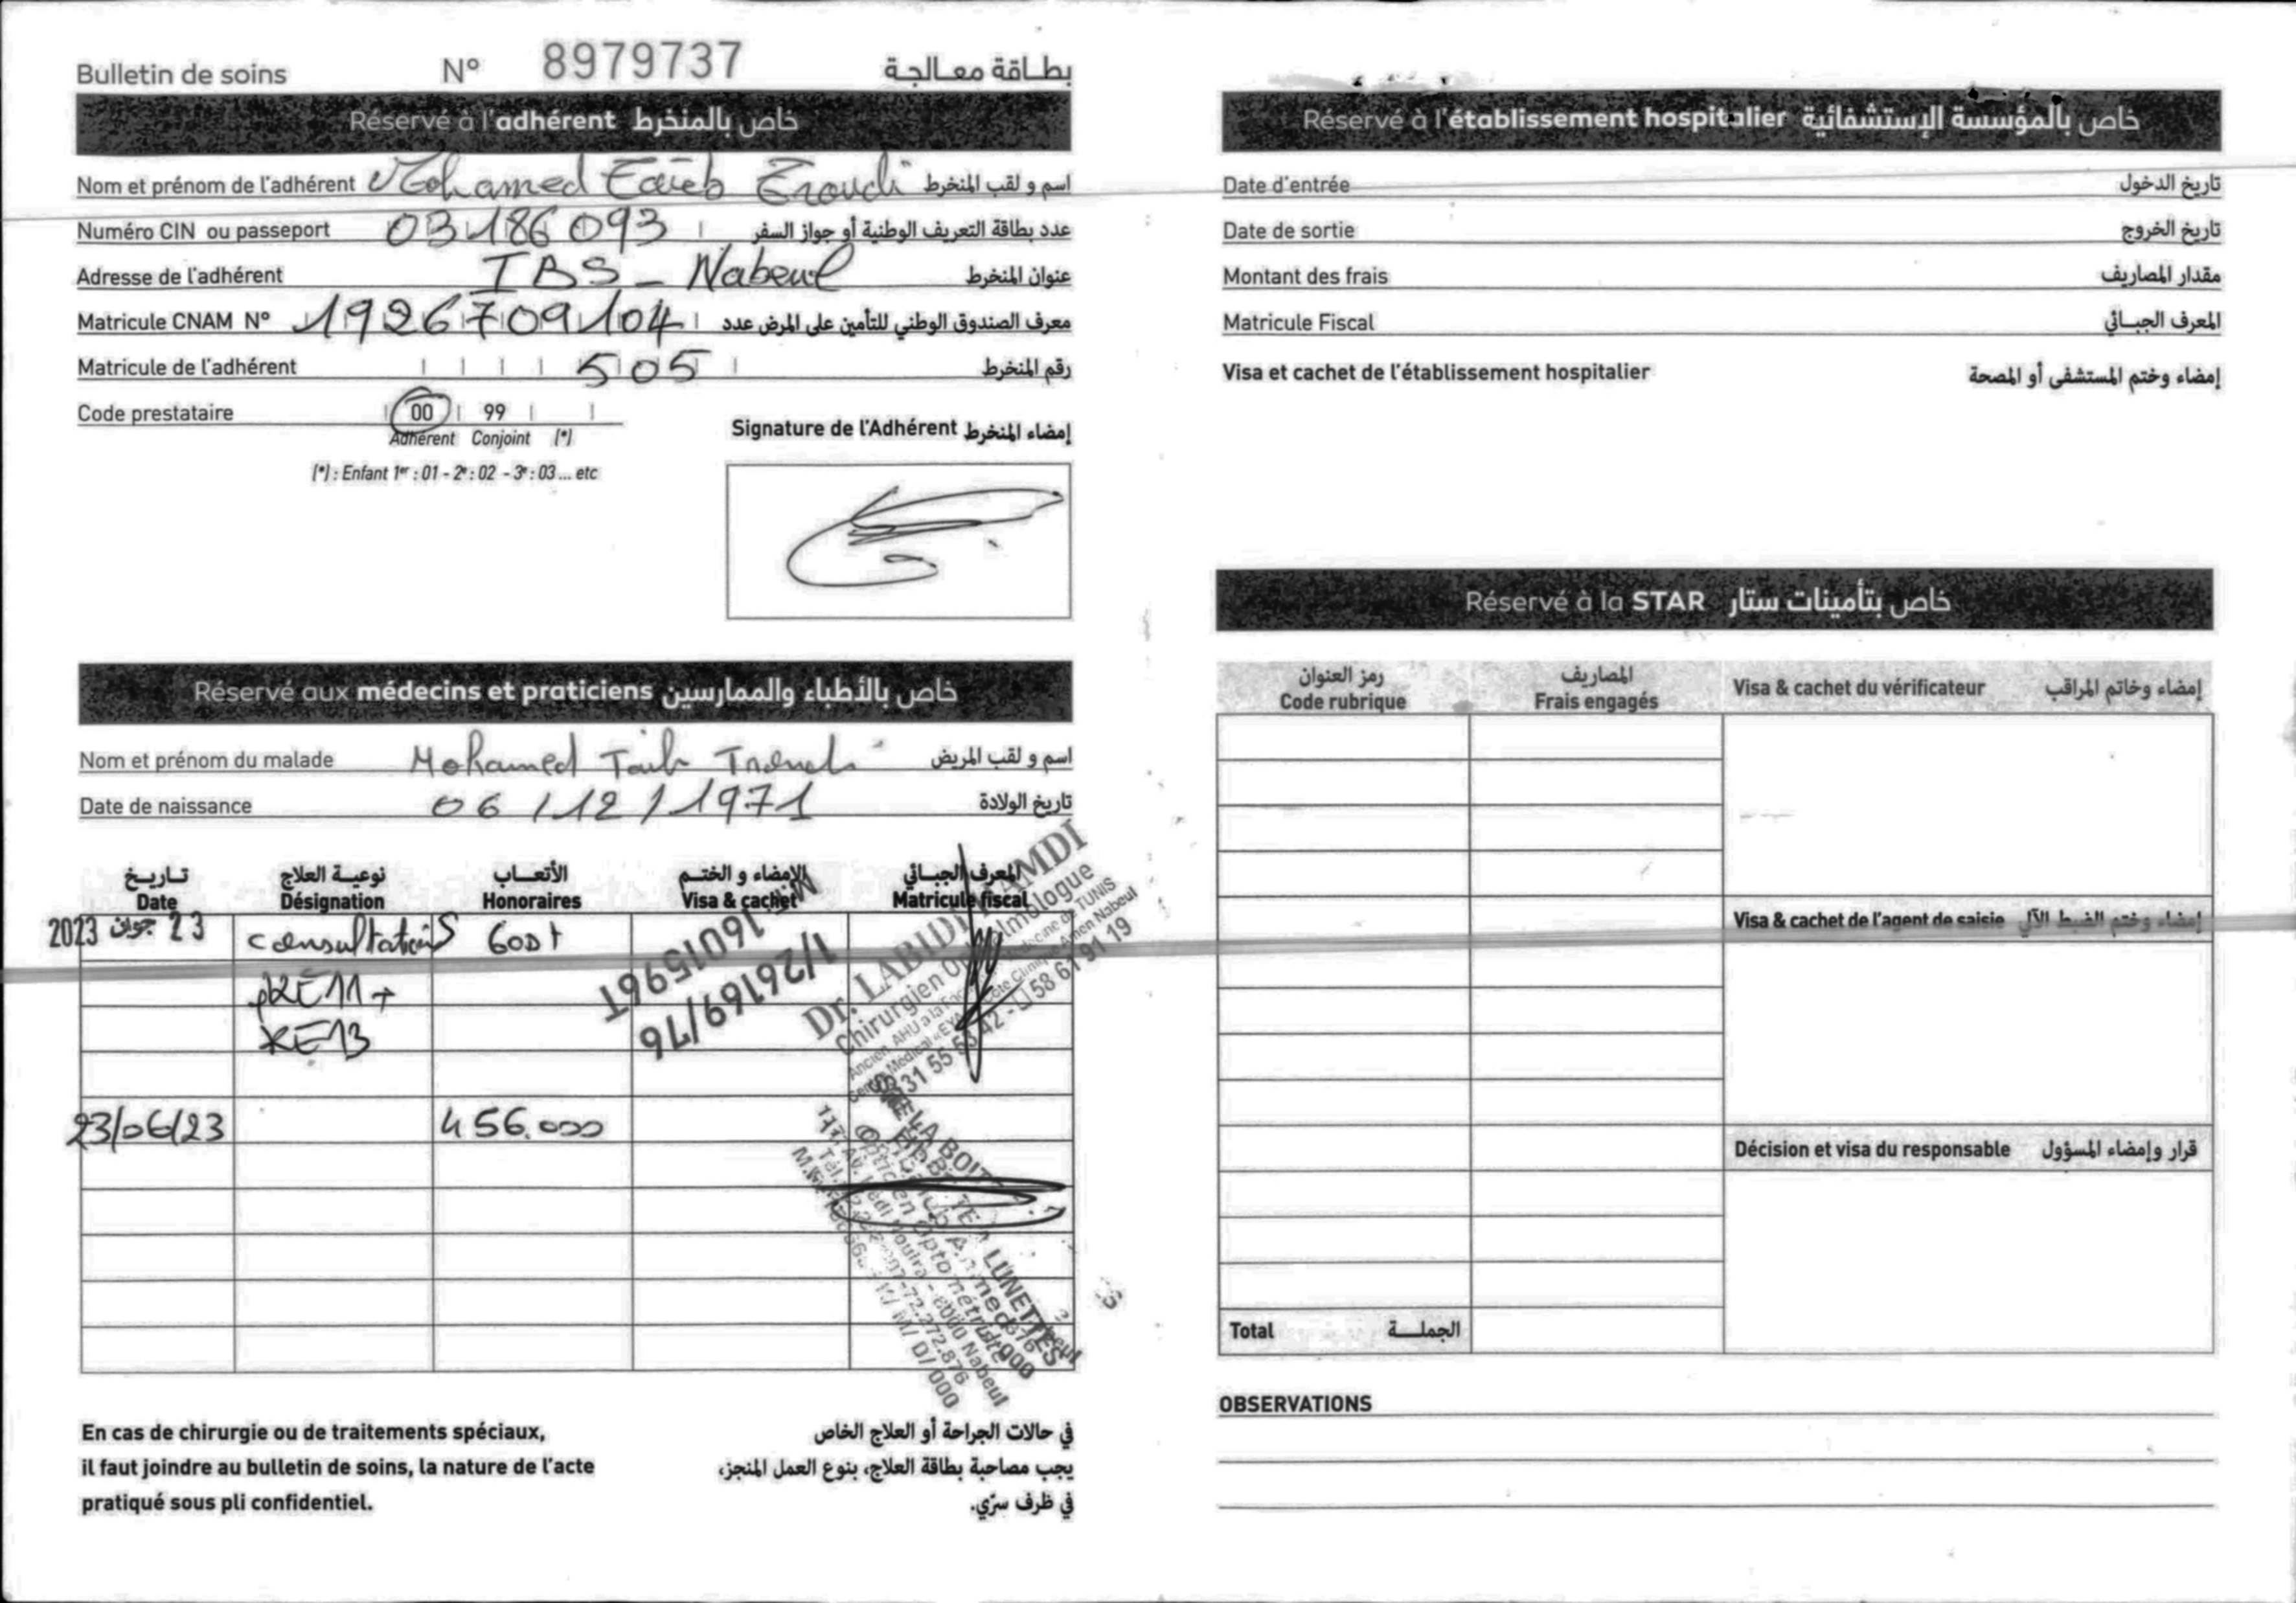 Bulletin de soins N° 8979737 بطاقة معالجة
Réservé à l'adhérent خاص بالمنخرط
Nom et prénom de l'adhérent Mohamed Taieb اسم و لقب المنخرط
Numéro CIN ou passeport 03186093 عدد بطاقة التعريف الوطنية أو جواز السفر
Adresse de l'adhérent TBS - Nabeul عنوان المنخرط
Matricule CNAM N° 1926709104 معرف الصندوق الوطني للتأمين على المرض عدد
Matricule de l'adhérent 505 رقم المنخرط
Code prestataire 00 99
Adhérent Conjoint (*)
(*) : Enfant 1er : 01 - 2e : 02 - 3e : 03 ... etc
Signature de l'Adhérent إمضاء المنخرط
Réservé aux médecins et praticiens خاص بالأطباء والممارسين
Nom et prénom du malade Mohamed Taib اسم و لقب المريض
Date de naissance 06/12/1971 تاريخ الولادة
تاريخ نوعية العلاج الأتعاب الإمضاء و الختم المعرف الجبائي
Date Désignation Honoraires Visa & cachet Matricule fiscal
2023 جوان 23 consultation 60Dt
KE11 +
KE13
1601596T
1/26169/76
Dr. LABIDI
Chirurgien Ophtalmologue
58 61 91 19
23/06/23 456.000
LUNETTES
Nabeul
En cas de chirurgie ou de traitements spéciaux,
il faut joindre au bulletin de soins, la nature de l'acte
pratiqué sous pli confidentiel.
في حالات الجراحة أو العلاج الخاص
يجب مصاحبة بطاقة العلاج، بنوع العمل المنجز،
في ظرف سرّي.
Réservé à l'établissement hospitalier خاص بالمؤسسة الإستشفائية
Date d'entrée تاريخ الدخول
Date de sortie تاريخ الخروج
Montant des frais مقدار المصاريف
Matricule Fiscal المعرف الجبائي
Visa et cachet de l'établissement hospitalier إمضاء وختم المستشفى أو المصحة
Réservé à la STAR خاص بتأمينات ستار
رمز العنوان المصاريف
Code rubrique Frais engagés Visa & cachet du vérificateur إمضاء وخاتم المراقب
Visa & cachet de l'agent de saisie إمضاء وختم الضبط الآلي
Décision et visa du responsable قرار وإمضاء المسؤول
Total الجملة
OBSERVATIONS